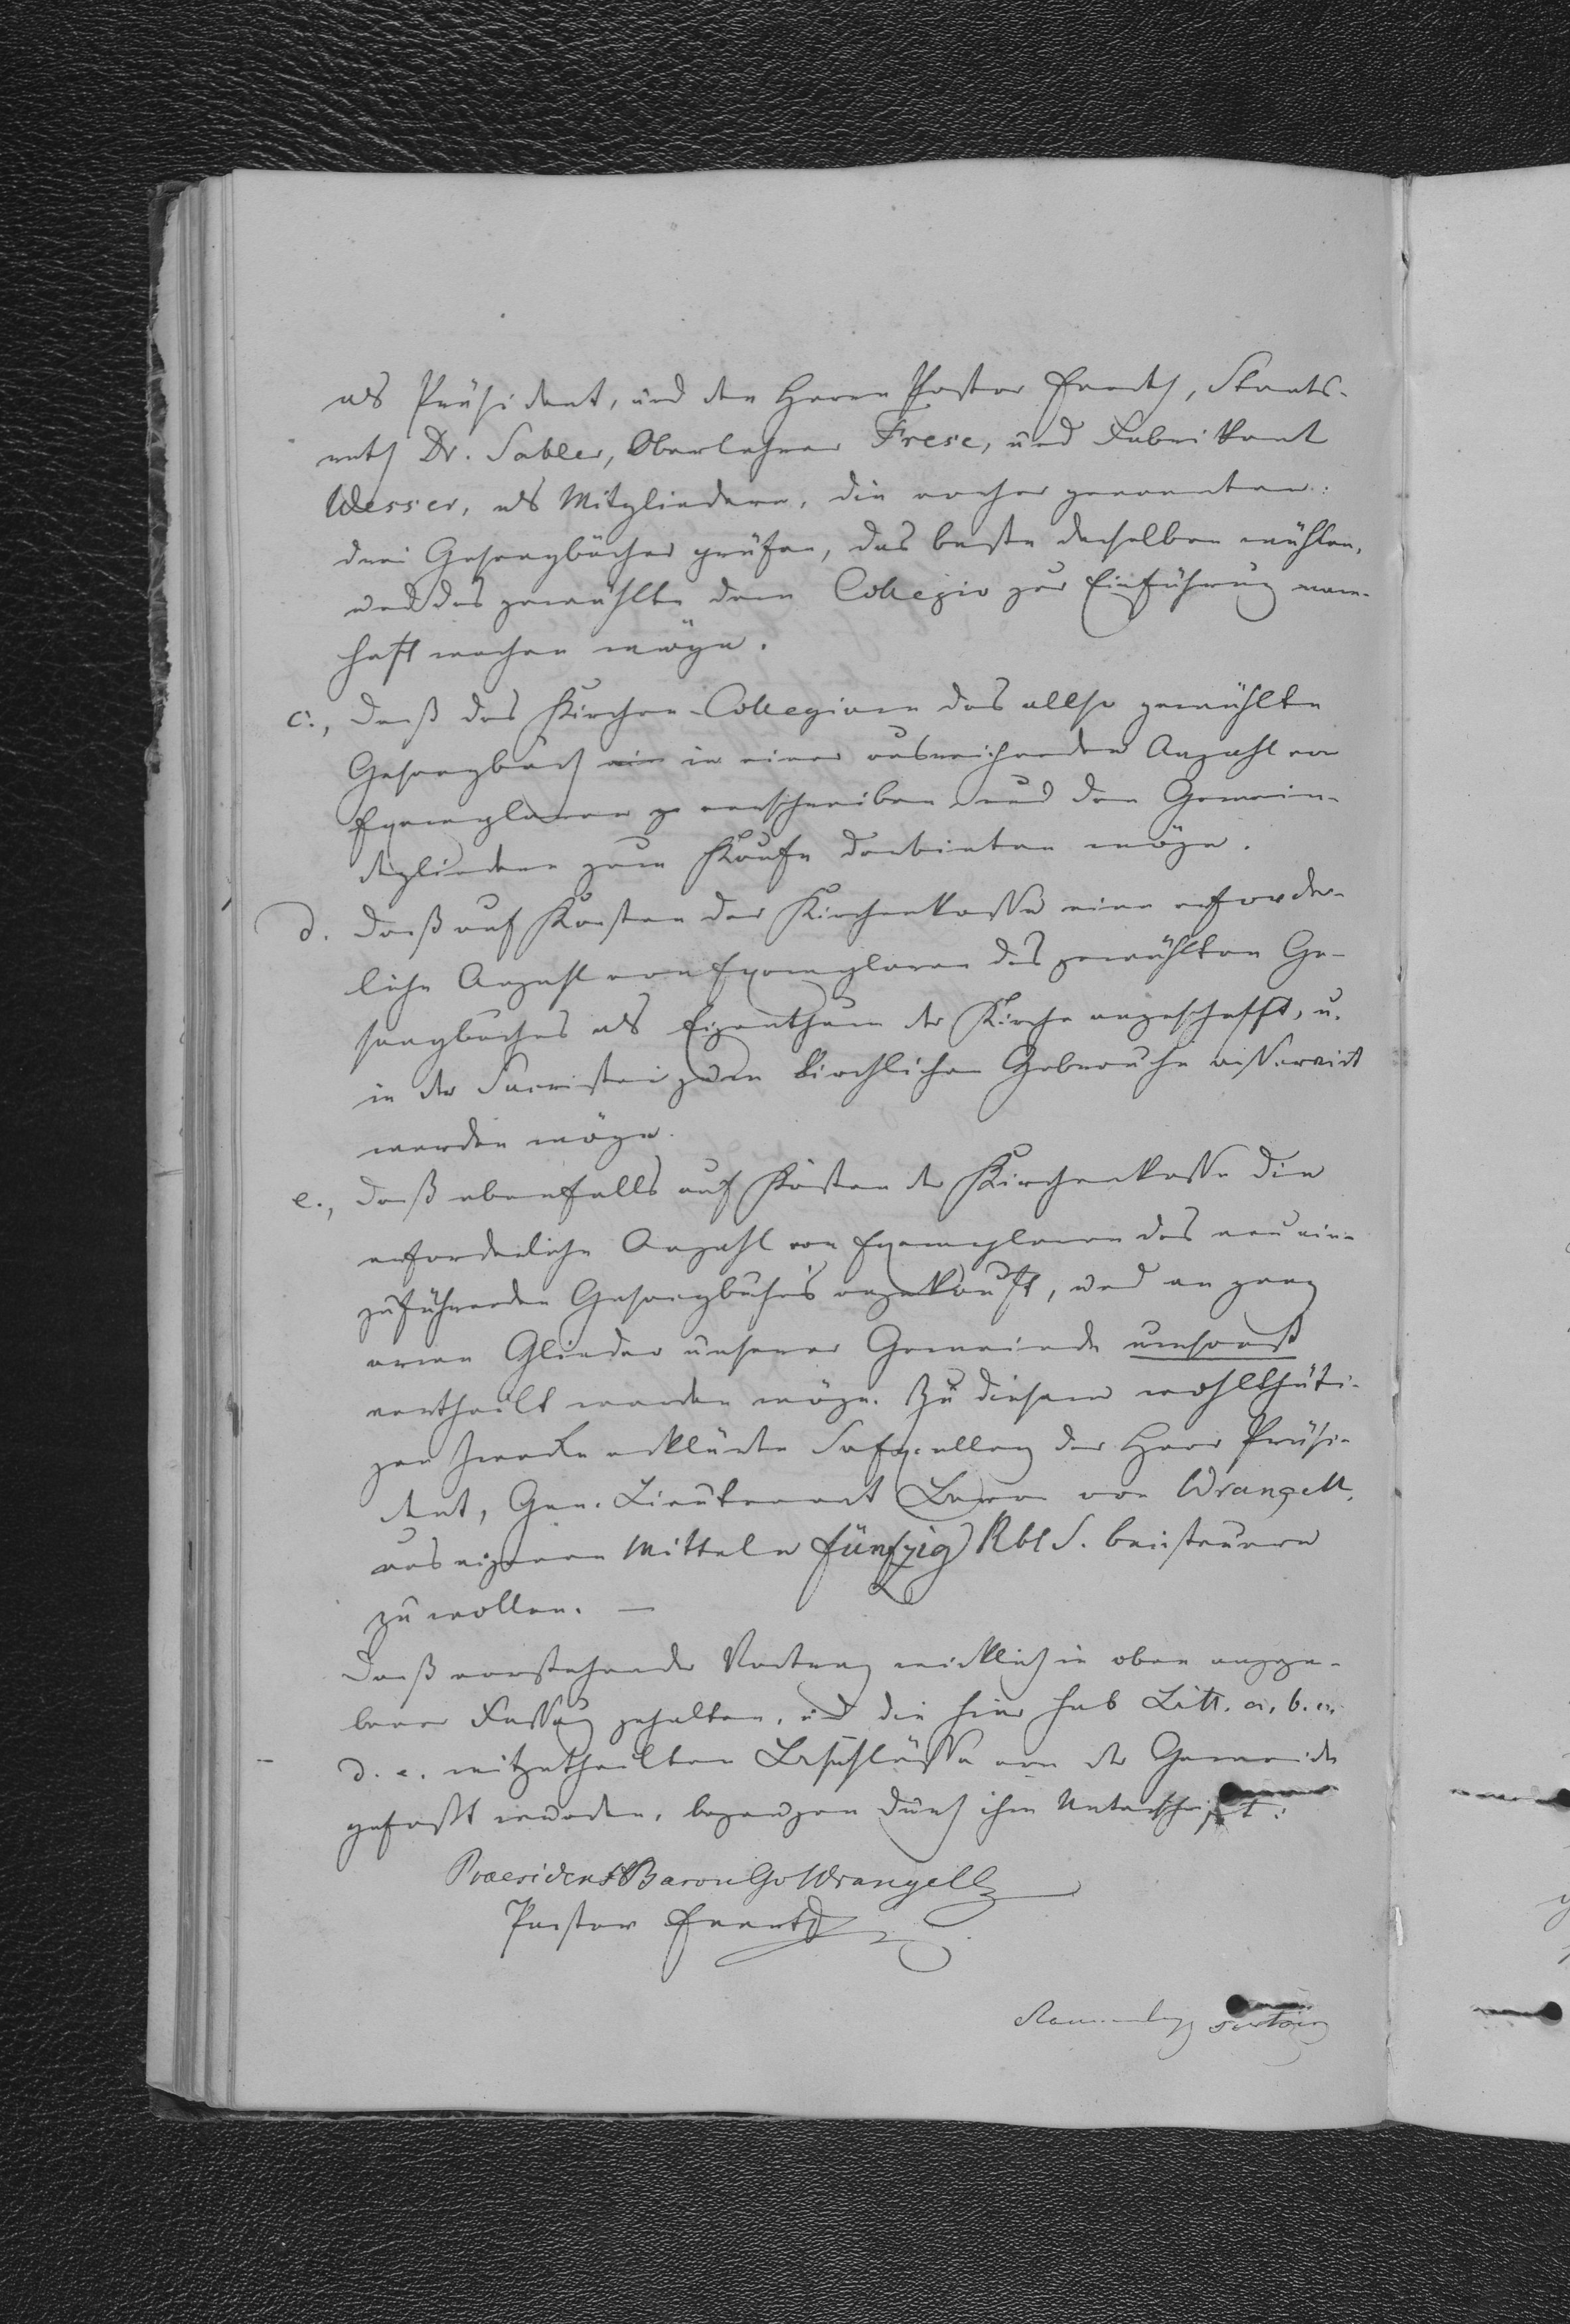 als Präsident, und den Herren Pastor Everth, Staats-
rath Dr. Sabler, Oberlehrer Frese, und Fabrikant
Wesser, als Mitgliedern, die vorher genannten
drei Gesangbücher prüfen, das beste derselben wählen,
und das gewählte dem Collegio zur Einführung nam-
haft machen möge.
c., Daß das Kirchen-Collegium das allso gewählte
Gesangbuch in einer ausreichenden Anzahl von
Exemplaren zu verschreiben und den Gemein-
degliedern zum Kaufe darbieten möge.
d. Daß auf Kosten der Kirchenkasse eine erforder-
liche Anzahl von Exemplaren des gewählten Ge-
sangbuches als Eigenthum der Kirche angeschafft, u.
in der Sacristei zum kirchlichen Gebrauche asservirt
werden möge.
e., Daß ebenfalls auf Kosten der Kirchenkasse die
erforderliche Anzahl von Exemplaren des neu ein-
zuführenden Gesangbuches angekauft, und an ganz
arme Glieder unserer Gemeinde umsonst
vertheilt werden möge. Zu diesem wohlthäti-
gen Zwecke erklärte Se. Excellenz der Herr Präsi-
dent, Gen. Lieutenant Baron von Wrangell,
aus eigenen Mitteln fünfzig Rbl S. beisteuern
zu wollen. —
Daß vorstehender Vortrag wirklich in oben ange-
bener Fassung gehalten, und die hier sub Litt. a, b. c.
d. e. mitgetheilten Beschlüsse von der Gemeinde
gefasst wurden, bezeugen durch ihre Unterschrift:
Praesident Baron Wrangell
Pastor Everth